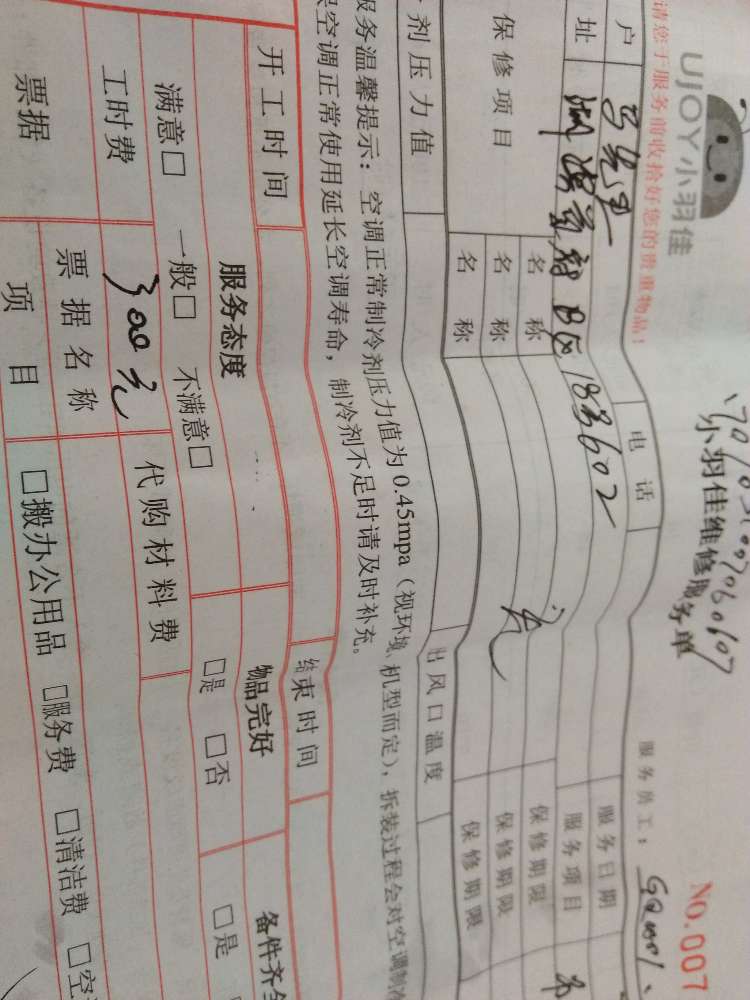 UJOY小羽佳
小羽佳维修服务单
NO.007
请您于服务前收拾好您的贵重物品!
服务员工:
户
电话
服务日期
址
B区18幢602
服务项目
保修项目
名称
保修期限
名称
保修期限
名称
保修期限
剂压力值
出风口温度
服务温馨提示:空调正常制冷剂压力值为0.45mpa(视环境、机型而定),拆装过程会对空调制冷
空调正常使用延长空调寿命,制冷剂不足时请及时补充。
开工时间
结束时间
服务态度
物品完好
备件齐全
满意□ 一般□ 不满意□
□是 □否
□是
工时费
300元
代购材料费
票据
票据名称
项目
□搬办公用品 □服务费 □清洁费 □空